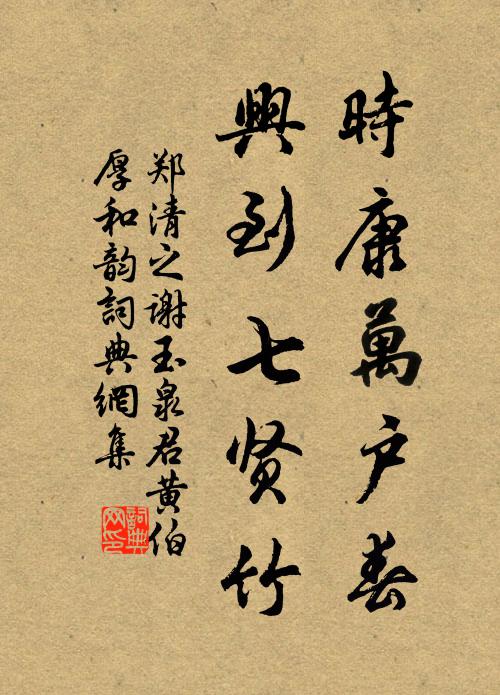 時康萬戶春
興到七贤竹
郑清之谢玉泉君黄伯
厚和韵詞典網集
詞典網印